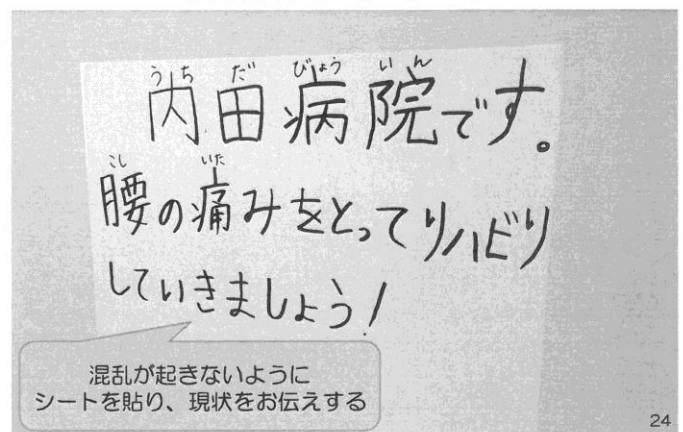 うちだびょういん
内田病院です。
こしいた
腰の痛みをとってリハビリ
していきましょう!
混乱が起きないように
シートを貼り、現状をお伝えする
24